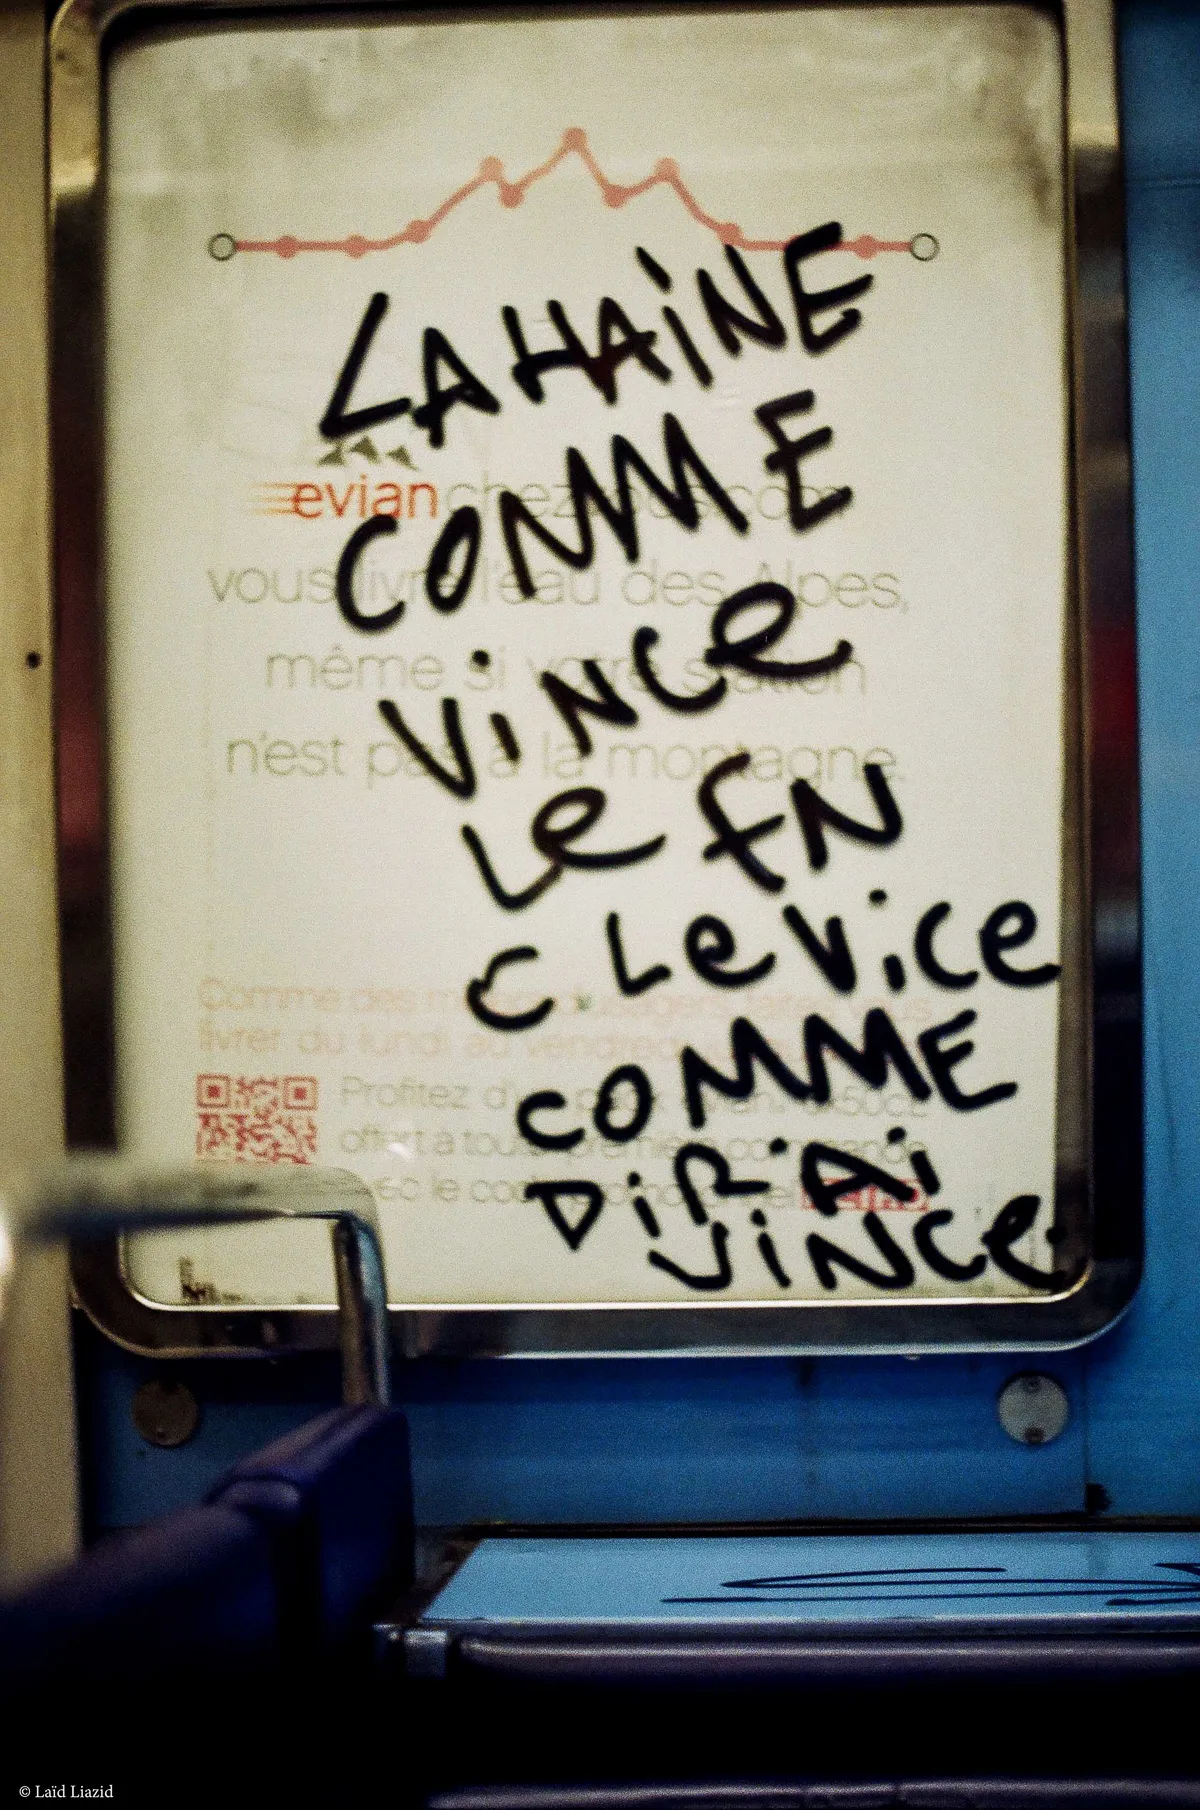 LA HAiNE
COMME
ViNCe
Le FN
C Le Vice
COMME
DiR'Ai
ViNCe.
evian chez
vous livre l'eau des Alpes,
même si votre station
n'est pas à la montagne.
Comme des
livrer du lundi au vendredi
Profitez
offert
le
© Laïd Liazid